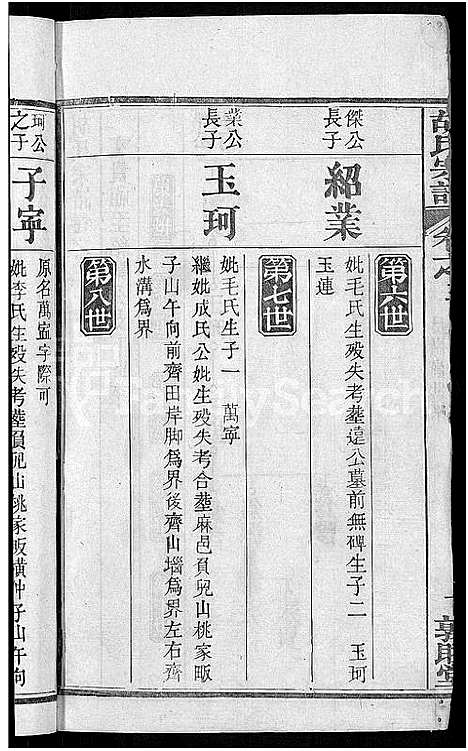 胡氏宗譜
敦睦堂
第六世
傑公長子
紹業
妣毛氏生殁失考塟遠公墓前無碑生子二 玉珂
玉連
第七世
業公長子
玉珂
妣毛氏生子一 萬寕
繼妣成氏公妣生殁失考合塟麻邑員㒵山桃家畈
子山午向前齊田岸脚為界後齊山墻為界左右齊
水溝為界
第八世
珂公之子
子寕
原名萬寕字際可
妣李氏生殁失考塟員㒵山桃家畈橫冲子山午向